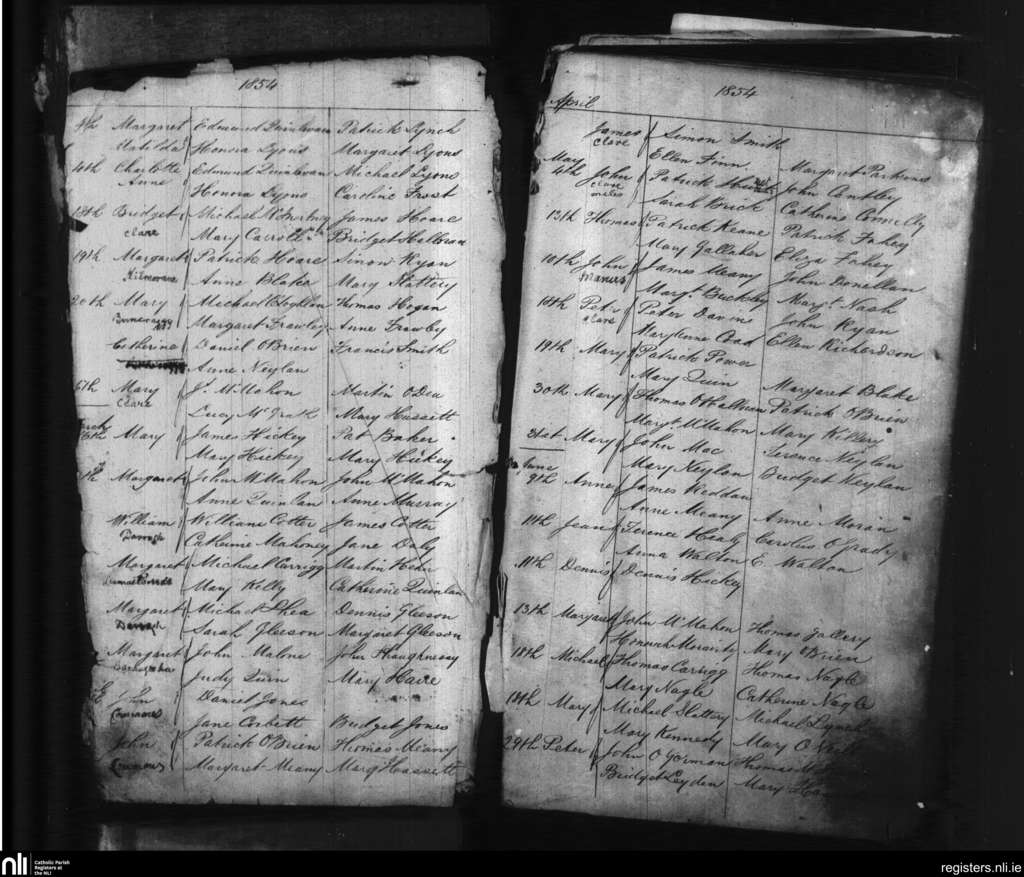 1854
4th Margaret Edmund Quinlivan Patrick Lynch
Matilda Honora Lyons Margaret Lyons
4th Charlotte Edmund Quinlivan Michael Lyons
Anne Honora Lyons Caroline Frost
18th Bridget Michael James Hoare
Clare Mary Carroll Bridget
19th Margaret Patrick Hoare Simon Ryan
Anne Blake Mary Slattery
20th Mary Michael Thomas Hogan
Margaret Frawley Anne Frawley
Catherine Daniel OBrien Francis Smith
Anne Neylan
Mary Js. McMahon Martin ODea
Clare Lucy McGrath Mary Hassett
Mary James Hickey Pat Baker
Mary Hickey Mary Hickey
Margaret John McMahon John McMahon
Anne Quinlan Anne Murray
William William Cotter James Cotter
Darragh Catherine Mahoney Jane Daly
Margaret Michael Carrigg Martin Hehir
Mary Kelly Catherine Quinlan
Margaret Michael Shea Dennis Gleeson
Darragh Sarah Gleeson Margaret Gleeson
Margaret John Malone John Shaughnessy
Judy Quin Mary Hare
John Daniel Jones
Jane Corbett Bridget Jones
John Patrick OBrien Thomas Meany
Margaret Meany Marg Hassett
1854
April
James Simon Smith
Clare Ellen Finn Margaret Perkins
May
4th John Patrick John Cantley
Clare Sarah Brick Catherine Connelly
13th Thomas Patrick Keane Patrick Fahey
Mary Gallaher Eliza Fahey
10th John James Meany John Donellan
Margt. Buckley Margt. Nash
18th Peter Peter Davin John Ryan
Clare Coad Ellen Richardson
19th Mary Patrick Power
Mary Quin Margaret Blake
30th Mary Thomas OHalloran Patrick OBrien
Margt McMahon Mary Killery
31st Mary John Mac Terence Neylan
Mary Neylan Bridget Neylan
June
9th Anne James Reddan
Anne Meany Anne Moran
11th Jean Terence Healy Carolus OGrady
Anna Walton E Walton
11th Dennis Dennis Hickey
13th Margaret John McMahon Thomas Gallery
Honorah Moriarty Mary OBrien
18th Michael Thomas Carrigg Thomas Nagle
Mary Nagle Catherine Nagle
18th Mary Michael Slattery Michael Lynch
Mary Kennedy Mary
29th Peter John OGorman Thomas
Bridget Leyden Mary
nli
Catholic Parish
Registers at
the NLI
registers.nli.ie